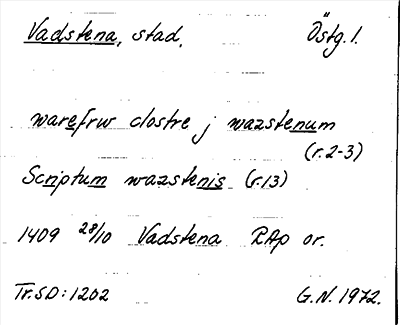 Vadstena, stad. Östg. l.
warefrw clostre j wazstenum
(r. 2-3)
Scriptum wazstenis (r. 13)
1409 28/10 Vadstena RAp or.
Tr. SD: 1202 G.N. 1972.